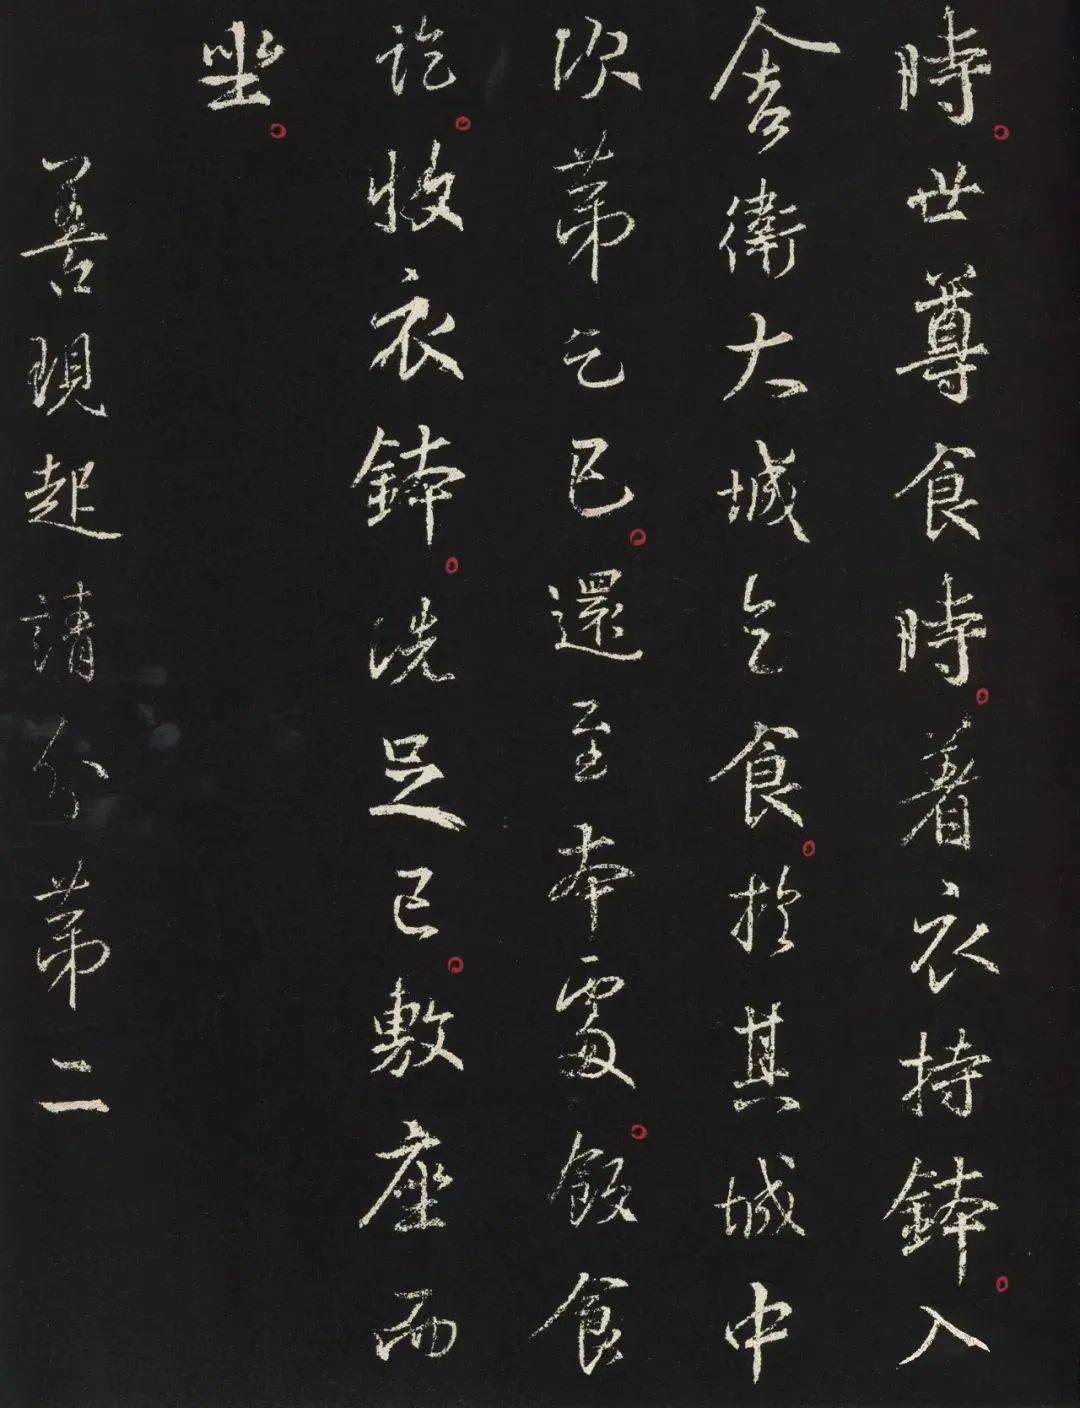 時世尊食時著衣持鉢入
舍衛大城乞食於其城中
次第乞已還至本處飯食
訖收衣鉢洗足已敷座而
坐
善現起請分第二